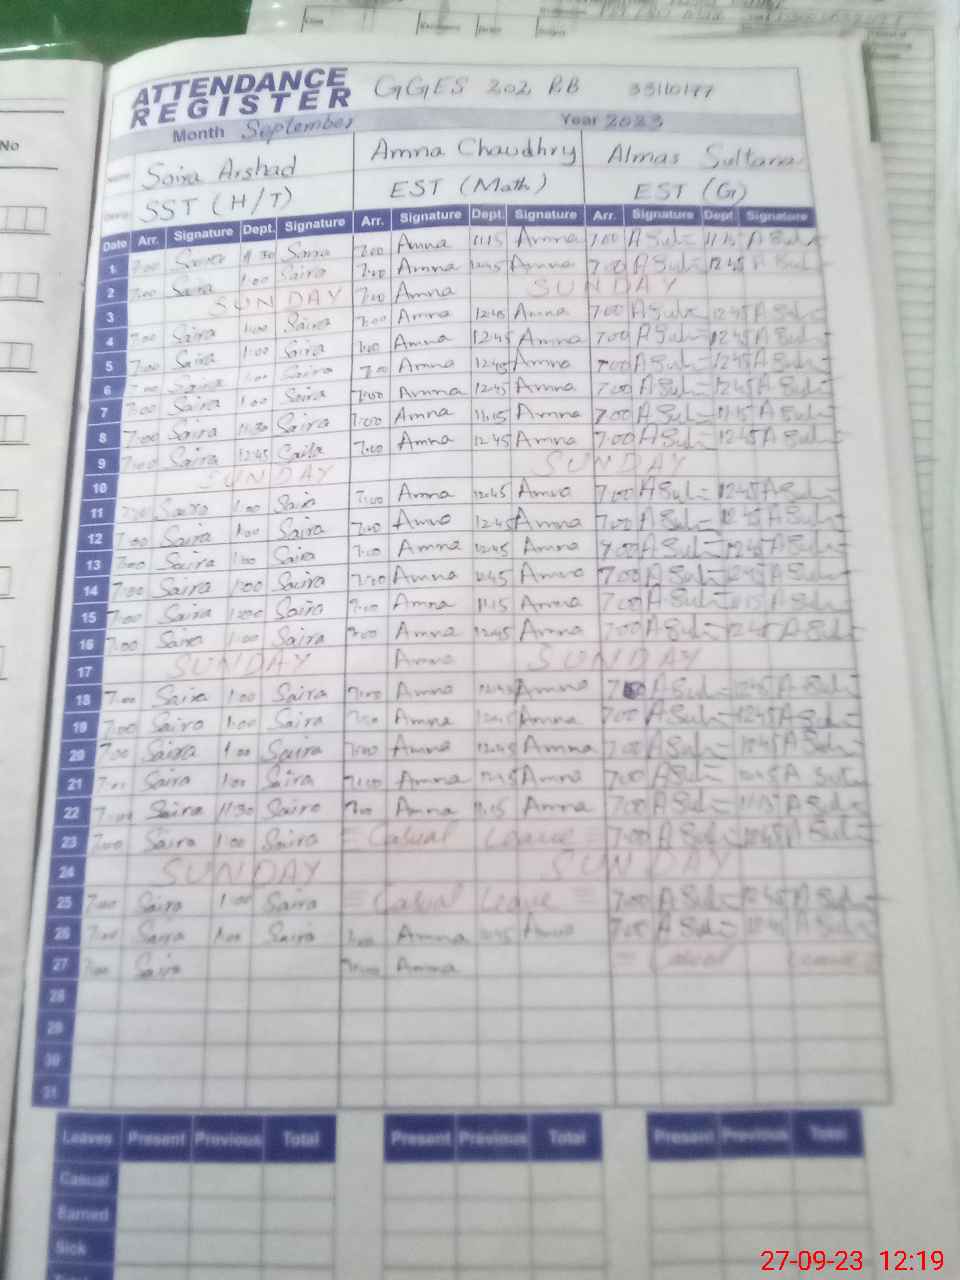 No
ATTENDANCE
REGISTER
GGES 202 RB
Month September Year 2023
Saira Arshad Amna Chaudhry Almas Sultana
SST (H/T) EST (Math) EST (G)
Date Arr. Signature Dept. Signature Arr. Signature Dept. Signature Arr. Signature Dept Signature
1 7:00 Saira 11 30 Saira 7:00 Amna 11:15 Amna 7:00 A Sul 11:15 A Sul
2 7:00 Saira 1:00 Saira 7:00 Amna 12:45 Amna 7:00 A Sul 12:45 A Sul
3 SUNDAY 7:00 Amna SUNDAY
4 7:00 Saira 1:00 Saira 7:00 Amna 12:45 Amna 7:00 A Sul 12:45 A Sul
5 7:00 Saira 1:00 Saira 7:00 Amna 12:45 Amna 7:00 A Sul 12:45 A Sul
6 7:00 Saira 1:00 Saira 7:00 Amna 12:45 Amna 7:00 A Sul 12:45 A Sul
7 7:00 Saira 1:00 Saira 7:00 Amna 12:45 Amna 7:00 A Sul 12:45 A Sul
8 7:00 Saira 11:30 Saira 7:00 Amna 11:15 Amna 7:00 A Sul 11:15 A Sul
9 7:00 Saira 12:45 Saira 7:00 Amna 12:45 Amna 7:00 A Sul 12:45 A Sul
10 SUNDAY SUNDAY
11 7:00 Saira 1:00 Saira 7:00 Amna 12:45 Amna 7:00 A Sul 12:45 A Sul
12 7:00 Saira 1:00 Saira 7:00 Amna 12:45 Amna 7:00 A Sul 12:45 A Sul
13 7:00 Saira 1:00 Saira 7:00 Amna 12:45 Amna 7:00 A Sul 12:45 A Sul
14 7:00 Saira 1:00 Saira 7:00 Amna 12:45 Amna 7:00 A Sul 12:45 A Sul
15 7:00 Saira Saira 7:00 Amna 11:15 Amna 7:00 A Sul 11:15 A Sul
16 7:00 Saira 1:00 Saira 7:00 Amna 12:45 Amna 7:00 A Sul 12:45 A Sul
17 SUNDAY Amna SUNDAY
18 7:00 Saira 1:00 Saira 7:00 Amna 12:45 Amna A Sul 12:45 A Sul
19 7:00 Saira 1:00 Saira 7:00 Amna 12:45 Amna 7:00 A Sul 12:45 A Sul
20 7:00 Saira 1:00 Saira 7:00 Amna 12:45 Amna 7:00 A Sul 12:45 A Sul
21 7:00 Saira 1:00 Saira 7:00 Amna 12:45 Amna 7:00 A Sul 12:45 A
22 7:00 Saira 11:30 Saira 7:00 Amna 11:15 Amna 7:00 A Sul 11:15 A Sul
23 7:00 Saira 1:00 Saira Casual Leave 7:00 A Sul 12:45 A Sul
24 SUNDAY SUNDAY
25 7:00 Saira 1:00 Saira Casual Leave 7:00 A Sul 12:45 A Sul
26 7:00 Saira 1:00 Saira 7:00 Amna 12:45 Amna 7:00 A Sul 12:45 A Sul
27 7:00 Saira 7:00 Amna Casual Leave
28
29
30
31
Leaves Present Previous Total Present Previous Total Present Previous Total
Casual
Earned
Sick
27-09-23 12:19